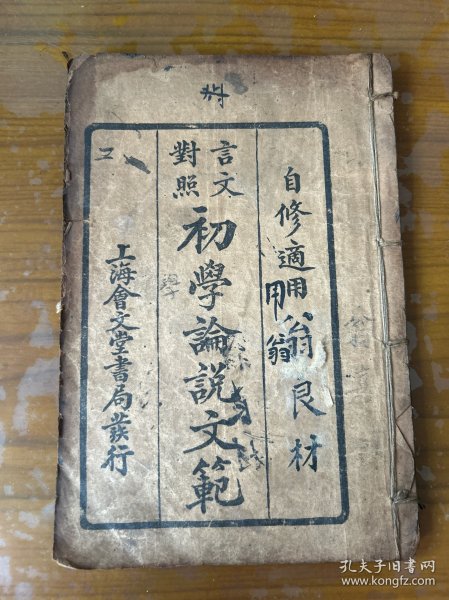 自修適用
翁艮材
用翁
言文
對照
初學論說文範
上海會文堂書局發行
孔夫子旧书网
www.kongfz.com